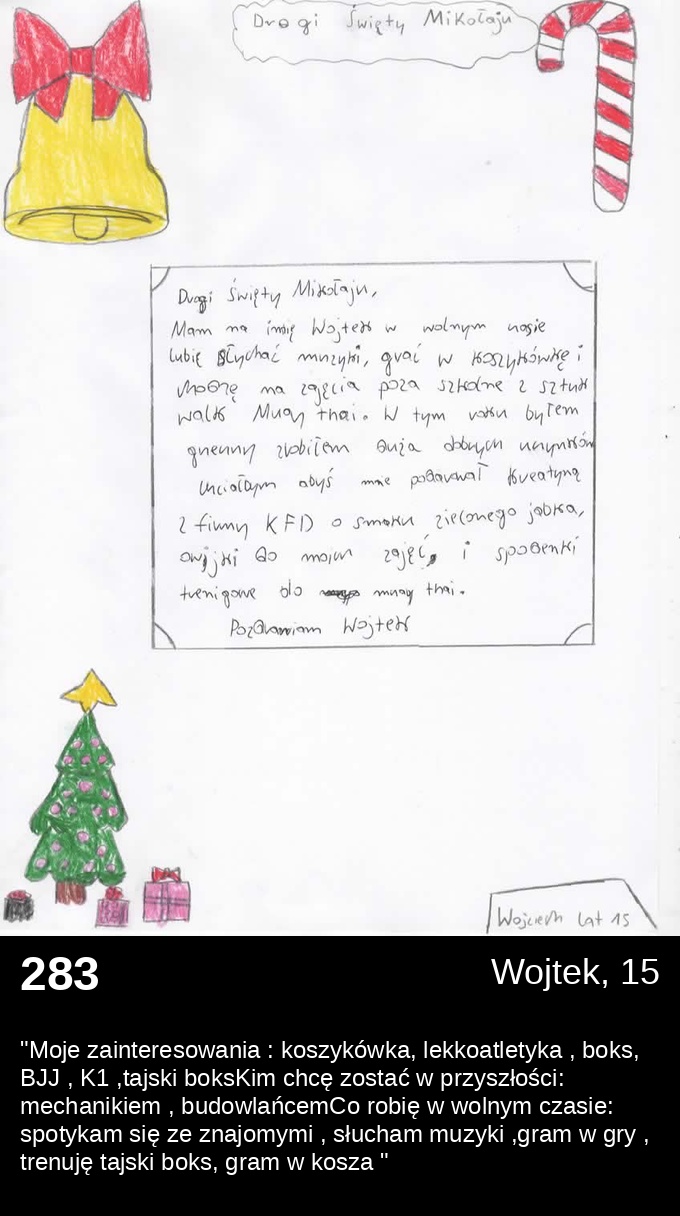 Drogi Święty Mikołaju
Drogi Święty Mikołaju,
Mam na imię Wojtek w wolnym czasie
lubię słychać muzyki, grać w koszykówkę i
chodzę na zajęcia poza szkolne z sztuk
walk Muay thai. W tym roku byłem
grzeczny zrobiłem dużo dobrych uczynków
chciałbym abyś mnie podarował kreatynę
z firmy KFD o smaku zielonego jabka,
owijki do moich zajęć, i spodenki
trenigowe do muay thai.
Pozdrawiam Wojtek
Wojciech lat 15
283
Wojtek, 15
"Moje zainteresowania : koszykówka, lekkoatletyka , boks,
BJJ , K1 ,tajski boksKim chcę zostać w przyszłości:
mechanikiem , budowlańcemCo robię w wolnym czasie:
spotykam się ze znajomymi , słucham muzyki ,gram w gry ,
trenuję tajski boks, gram w kosza "